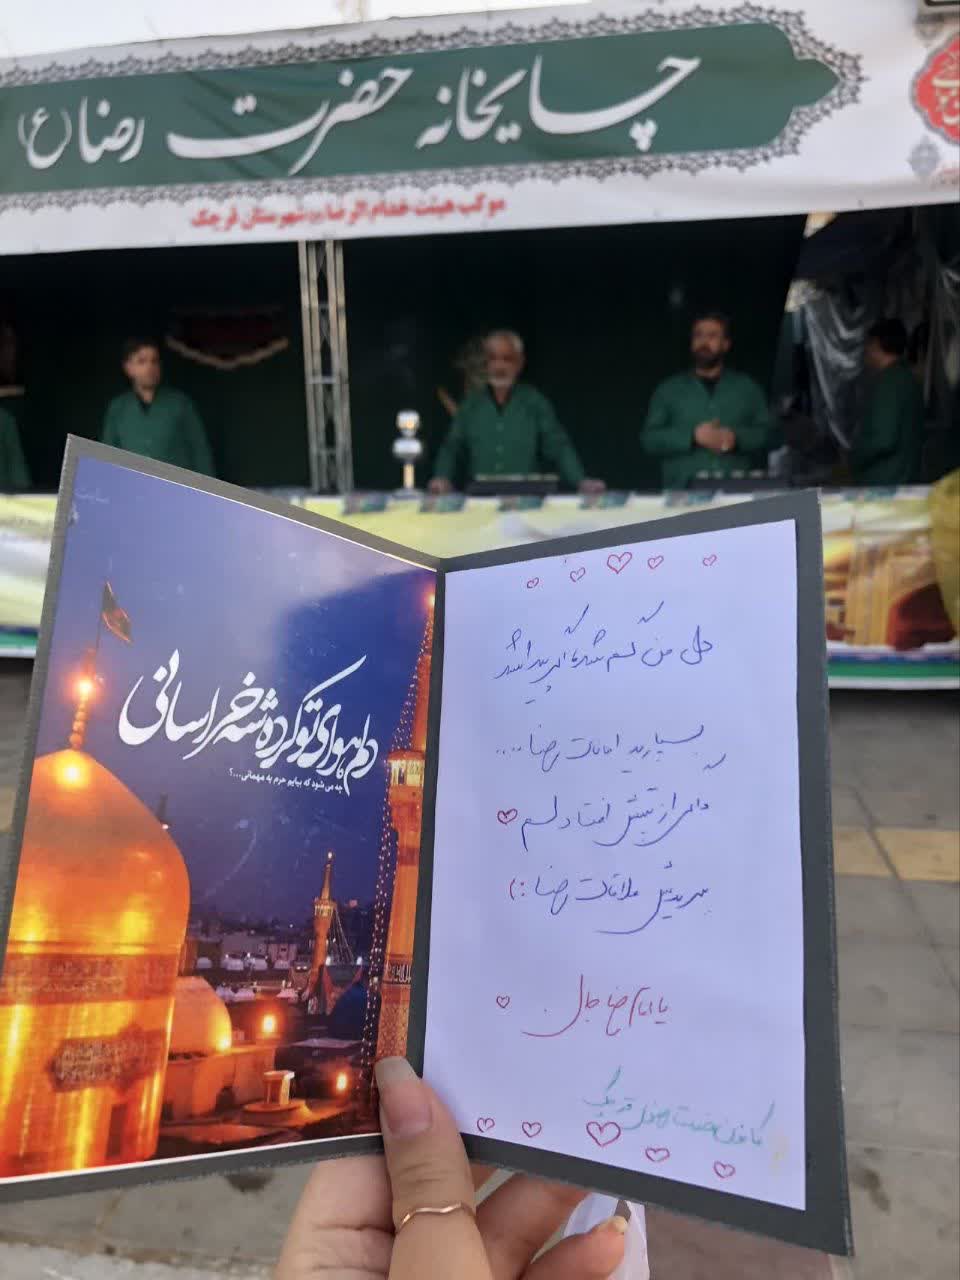 چایخانه حضرت رضا (ع)
موکب هیئت خدام الرضا شهرستان قرچک
دلم هوای تو کرده شه خراسانی
چه می شود که بیایم حرم به مهمانی...؟
دل من گم شد، گر پیدا شد
بسپارید امانات رضا....
و اگر از تپش افتاد دلم
ببریدش ملاقات رضا :)
یا امام رضا جان
کانون خدمت رضوی قرچک